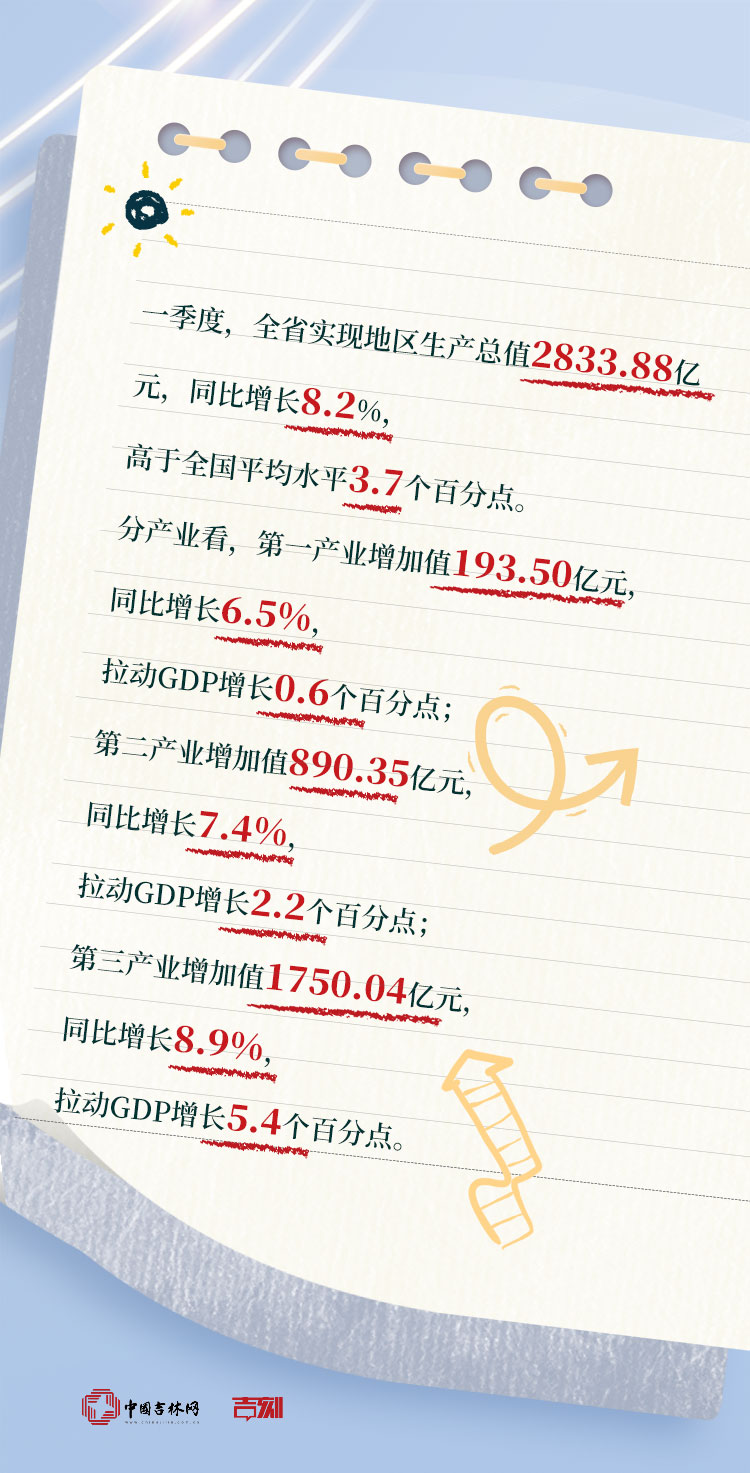 一季度，全省实现地区生产总值2833.88亿
元，同比增长8.2%，
高于全国平均水平3.7个百分点。
分产业看，第一产业增加值193.50亿元，
同比增长6.5%，
拉动GDP增长0.6个百分点；
第二产业增加值890.35亿元，
同比增长7.4%，
拉动GDP增长2.2个百分点；
第三产业增加值1750.04亿元，
同比增长8.9%，
拉动GDP增长5.4个百分点。
中国吉林网
吉刻